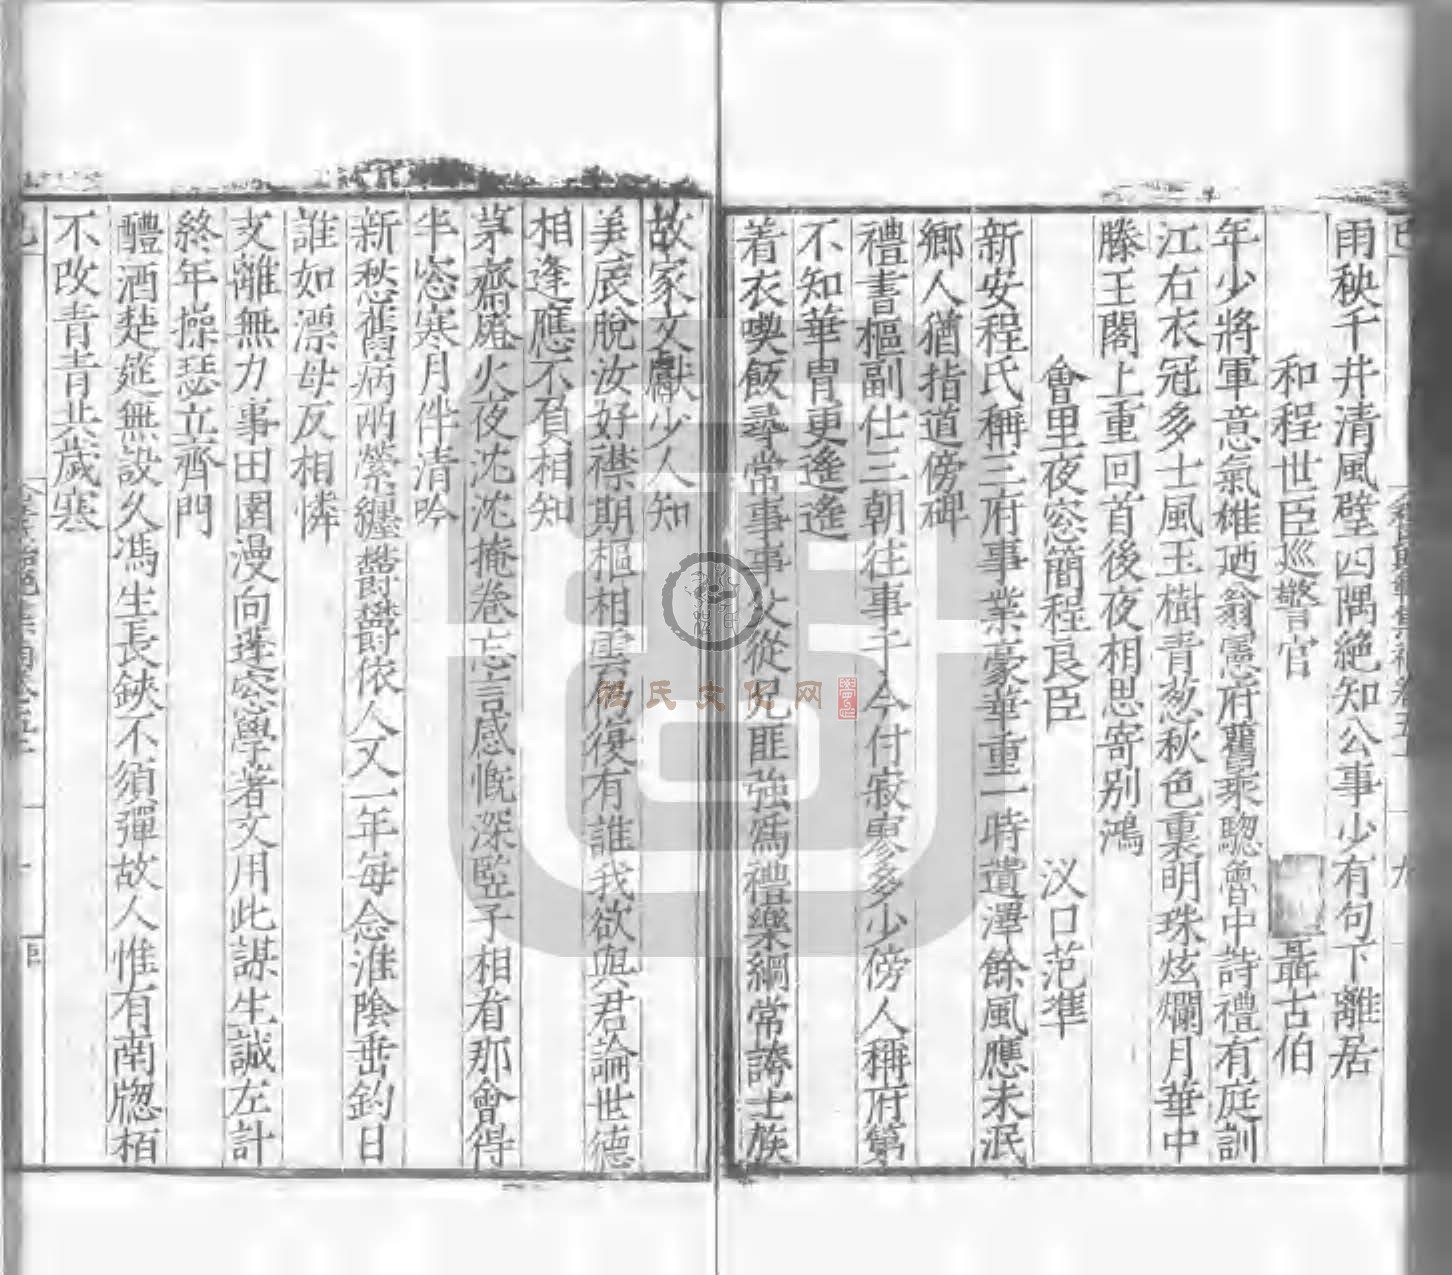 雨秧千井清風壁四隅絶知公事少有句下離居
和程世臣巡警官
聶古伯
年少將軍意氣雄廼翁憲府舊乘驄魯中詩禮有庭訓
江右衣冠多士風玉樹青葱秋色裏明珠炫爛月華中
滕王閣上重回首後夜相思寄別鴻
會里夜窓簡程良臣
汊口范準
新安程氏稱三府事業豪華重一時遺澤餘風應未泯
鄉人猶指道傍碑
禮書樞副仕三朝往事千今付寂寥多少傍人稱府第
不知華胄更遙遙
着衣喫飯尋常事事父從兄匪強爲禮樂綱常誇士族
故家文獻少人知
美辰脫汝好襟期樞相雲仍復有誰我欲與君論世德
相逢應不負相知
茅齋煨火夜沈沈掩卷忘言感慨深臨子相看那會得
半窓寒月伴清吟
新愁舊病兩縈纏鬱鬱依人又一年每念淮陰垂釣日
誰如漂母反相憐
支離無力事田園漫向蓬窓學著文用此謀生誠左計
終年操瑟立齊門
醴酒楚筵無設久馮生長鋏不須彈故人惟有南牕栢
不改青青共歲寒
程氏文化网